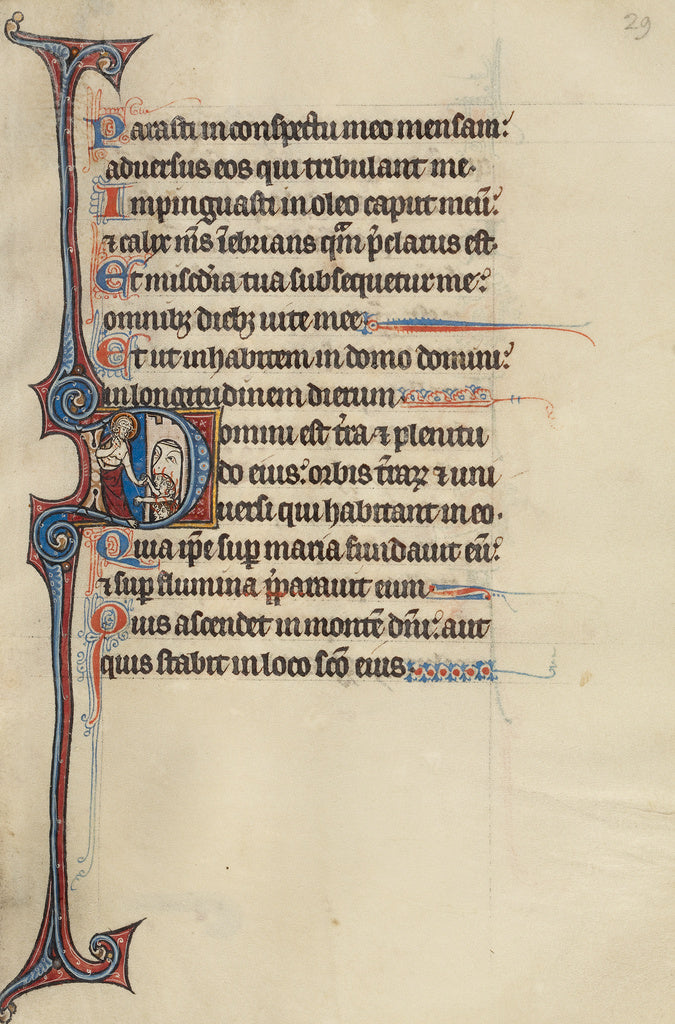 29
Parasti in conspectu meo mensam:
aduersus eos qui tribulant me.
Impinguasti in oleo caput meū:
⁊ calix m̄s īebrians q̄m p̄clarus est.
Et misc̄dia tua subsequetur me:
omnibꝫ diebꝫ uite mee
Et ut inhabitem in domo domini:
in longitudinem dierum
Domini est t̄ra ⁊ plenitu
do eius: orbis t̄raꝝ ⁊ uni
uersi qui habitant in eo.
Quia ip̄e sup̄ maria fundauit eū:
⁊ sup̄ flumina p̄parauit eum
Quis ascendet in montē dn̄i: aut
quis stabit in loco sc̄o eius